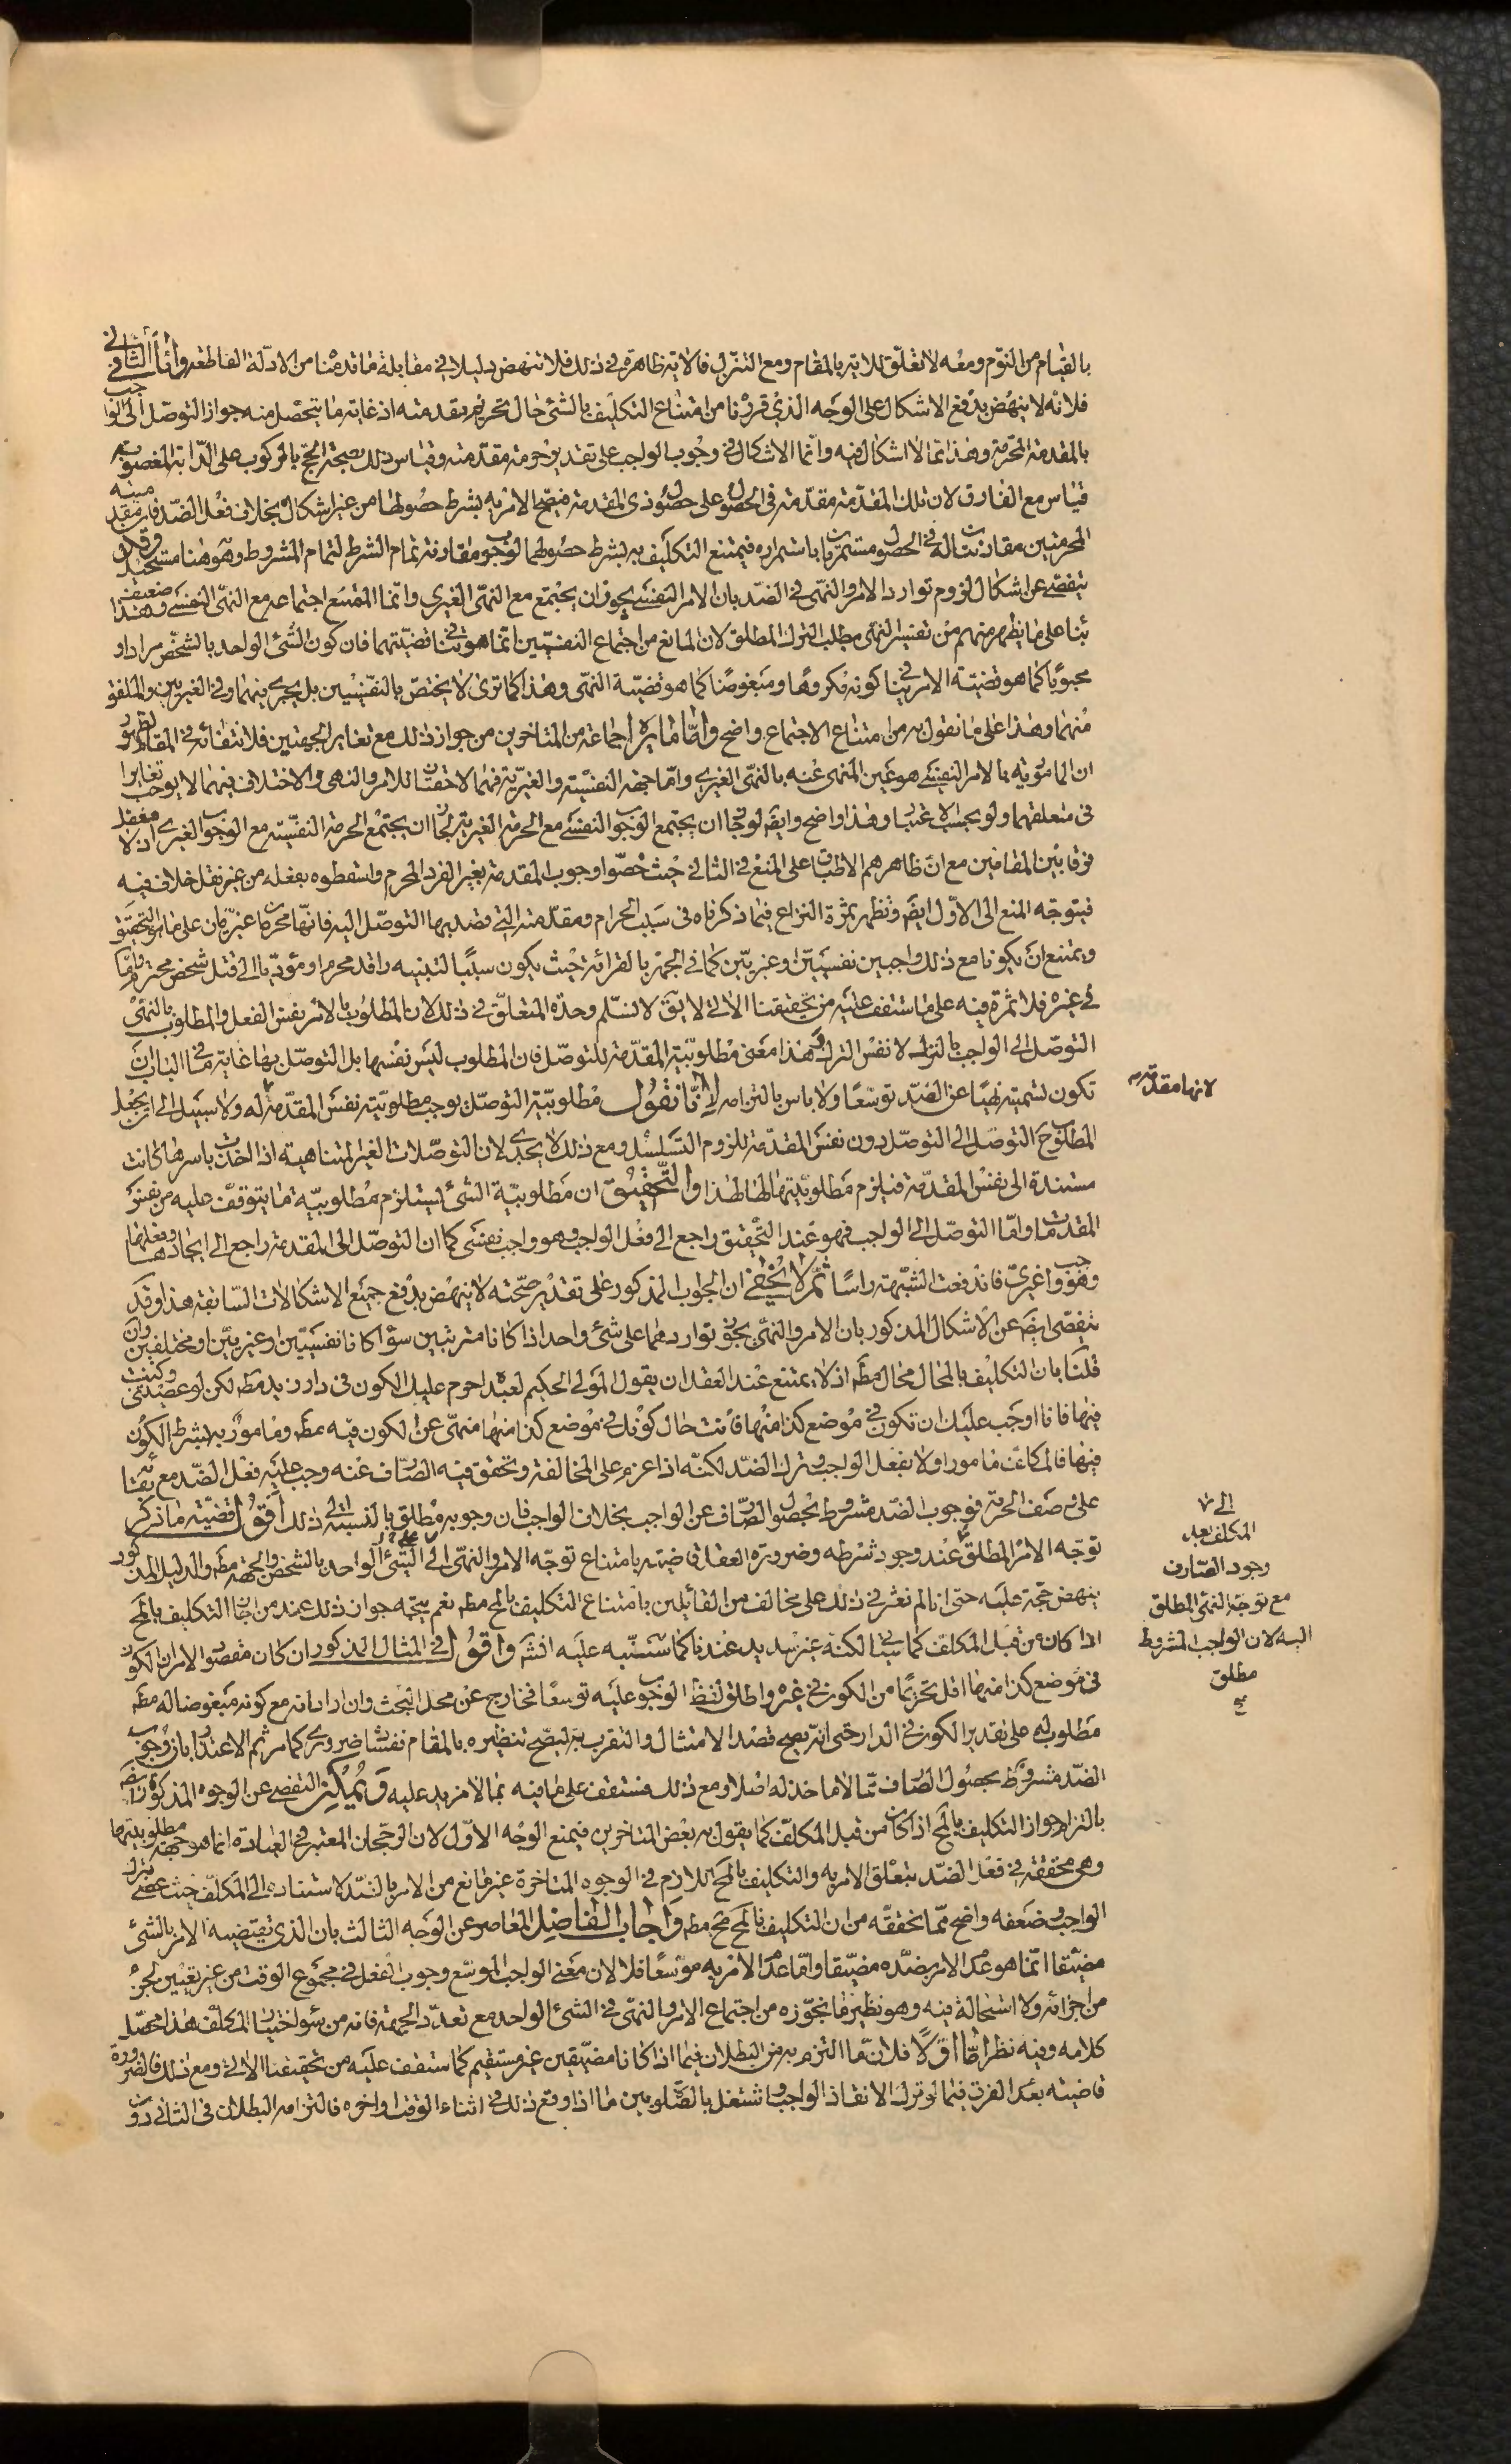 بالقيام من النوم ومعه لا تعلق للاية بالمقام ومع التنزل فالاية ظاهرة في ذلك فلا تنهض دليلا في مقابلة ما قدمنا من الادلة القاطعة واما الثاني
فلانه لا ينهض بدفع الاشكال على الوجه الذي قررنا من امتناع التكليف بالشئ حال تحريم مقدمته اذ غاية ما يتحصل منه جواز التوصل الى الواجب
بالمقدمة المحرمة وهذا مما لا اشكال فيه وانما الاشكال في وجوب الواجب على تقدير حرمة مقدمته وقياس ذلك بصحة الحج بالركوب على الدابة المغصوبة
قياس مع الفارق لان تلك المقدمة مقدمة في الحصول على حصول ذي المقدمة فيصح الامر به بشرط حصولها من غير اشكال بخلاف فعل الضد فان مقدميته
المحرمتين مقارنتان له في الحصول مستمرتان باستمراره فيمتنع التكليف به بشرط حصولهما لوجوب مقارنة تمام الشرط لتمام المشروط وهو هنا مستحيل وقد
يتفصى عن اشكال لزوم توارد الامر والنهي في الضد بان الامر النفسي يجوز ان يجتمع مع النهي الغيري وانما الممتنع اجتماعه مع النهي النفسي وهذا ضعيف
بناء على ما يظهر منهم من تفسير النهي بطلب الترك المطلق لان المانع من اجتماع النفسيين انما هو تنافي قضيتهما فان كون الشئ الواحد بالشخص مرادا و
محبوبا كما هو قضية الامر ينافي كونه مكروها ومبغوضا كما هو قضية النهي وهذا كما ترى لا يختص بالنفسيين بل يجري بينهما وفي الغيريين والملفق
منهما وهذا على ما نقول به من امتناع الاجتماع واضح واما ما يراه جماعة من المتاخرين من جواز ذلك مع تغاير الجهتين فلانتفائه في المقام لظهور
ان المامور به بالامر النفسي هو عين المنهي عنه بالنهي الغيري واما جهة النفسية والغيرية فهما لاحقتان للامر والنهي والاختلاف فيهما لا يوجب تغايرا
في متعلقهما ولو بحسب الاعتبار وهذا واضح وايضا لو جاز ان يجتمع الوجوب النفسي مع الحرمة الغيرية لجاز ان يجتمع الحرمة النفسية مع الوجوب الغيري اذ لا يعقل
فرق بين المقامين مع ان ظاهرهم الاطباق على المنع في الثاني حيث خصوا وجوب المقدمة بغير الفرد المحرم واسقطوه بفعله من غير نقل خلاف فيه
فيتوجه المنع الى الاول ايضا وتظهر ثمرة النزاع فيما ذكرناه في سبب الحرام ومقدمته التي قصد بها التوصل اليه فانها محرمان غيريان على ما هو التحقيق
ويمتنع ان يكونا مع ذلك واجبين نفسيين او غيريين كما في الجهر بالقرائة حيث يكون سببا لتنبيه راقد محرم او مؤديا الى قتل شخص محترم واما
في غيره فلا ثمرة فيه على ما ستقف عليه من تحقيقنا الاتي لا يق لا نسلم وحدة المتعلق في ذلك لان المطلوب بالامر نفس الفعل والمطلوب بالنهي
التوصل الى الواجب بالترك لا نفس الترك وهذا معنى مطلوبية المقدمة للتوصل فان المطلوب ليس نفسها بل التوصل بها غاية ما في الباب ان
تكون تسميته نهيا عن الضد توسعا ولا باس بالتزامه لانا نقول مطلوبية التوصل يوجب مطلوبية نفس المقدمة له ولا سبيل الى ان يجعل
لانها مقدمة
المطلوب ح التوصل الى التوصل دون نفس المقدمة للزوم التسلسل ومع ذلك لا يجدي لان التوصلات الغير المتناهية اذا اخذت باسرها كانت
مستندة الى نفس المقدمة فيلزم مطلوبيتها لها هذا والتحقيق ان مطلوبية الشئ يستلزم مطلوبية ما يتوقف عليه من نفس
المقدمات واما التوصل الى الواجب فهو عند التحقيق راجع الى فعل الواجب وهو واجب نفسي كما ان التوصل الى المقدمة راجع الى ايجادها وفعلها
وهو واجب غيري فاندفعت الشبهة راسا ثم لا يخفى ان الجواب المذكور على تقدير صحته لا ينهض بدفع جميع الاشكالات السابقة هذا وقد
يتفصى ايضا عن الاشكال المذكور بان الامر والنهي يجوز تواردهما على شئ واحد اذا كانا مترتبين سواء كانا نفسيين او غيريين او مختلفين وان
قلنا بان التكليف بالمحال محال مطم اذ لا يمتنع عند العقل ان يقول المولى الحكيم لعبده احرم عليك الكون في دار زيد مطم لكن لو عصيتني وكنت
فيها فانا اوجب عليك ان تكون في موضع كذا منها فانت حال كونك في موضع كذا منها منهي عن الكون فيه مطم ومامور به بشرط الكون
فيها فالمكلف مامور اولا بفعل الواجب وترك الضد لكنه اذا عزم على المخالفة وتحقق فيه الصارف عنه وجب عليه فعل الضد مع بقائه
على صفة الحرمة فوجوب الضد مشروط بحصول الصارف عن الواجب بخلاف الواجب فان وجوبه مطلق بالنسبة الى ذلك اقول قضية ما ذكر
توجه الامر المطلق عند وجود شرطه وضرورة العقل قاضية بامتناع توجه الامر والنهي الى الشئ الواحد بالشخص والجهة مطم والدليل المذكور
الى
المكلف بعد
وجود الصارف
مع توجه النهي المطلق
اليه لان الواجب المشروط
مطلق
صح
ينهض حجة عليه حتى انا لم نعثر في ذلك على مخالف من القائلين بامتناع التكليف بالمح مطم نعم يتجه جواز ذلك عند من اجاز التكليف بالمح
اذا كان من قبل المكلف كما سياتي لكنه غير سديد عندنا كما سننبه عليه انش واقول في المثال المذكور ان كان مقصود الامر ان الكون
في موضع كذا منها اقل تحريما من الكون في غيره واطلق لفظ الوجوب عليه توسعا فخارج عن محل البحث وان اراد انه مع كونه مبغوضا له مطم
مطلوب له على تقدير الكون في الدار حتى انه يصح قصد الامتثال والتقرب به ليصح تنظيره بالمقام ففساده ضروري كما مر ثم الاعتذار بان وجوب
الضد مشروط بحصول الصارف مما لا ماخذ له اصلا ومع ذلك فستقف على ما فيه بما لا مزيد عليه ويمكن التفصي عن الوجوه المذكورة ايضا
بالتزام جواز التكليف بالمح اذا كان من قبل المكلف كما يقول به بعض المتاخرين فيمنع الوجه الاول لان الرجحان المعتبر في العبادة انما هو جهة مطلوبيتها
وهي محققة في فعل الضد بتعلق الامر به والتكليف بالمح اللازم في الوجوه المتاخرة غير مانع من الامر بالضد لاستناده الى المكلف حيث عصى بترك
الواجب وضعفه واضح مما نحققه من ان التكليف بالمح مح مطم واجاب الفاضل المعاصر عن الوجه الثالث بان الذي يقتضيه الامر بالشئ
مضيقا انما هو عدم الامر بضده مضيقا واما عدم الامر به موسعا فلا لان معنى الواجب الموسع وجوب الفعل في مجموع الوقت من غير تعيين لجزء
من اجزائه ولا استحالة فيه وهو نظير ما نجوزه من اجتماع الامر والنهي في الشئ الواحد مع تعدد الجهة فانه من سوء اختيار المكلف هذا محصل
كلامه وفيه نظر اما اولا فلان ما التزم به من البطلان فيما اذا كانا مضيقين غير مستقيم كما ستقف عليه من تحقيقنا الاتي ومع ذلك فالضرورة
قاضية بعدم الفرق فيما لو ترك الانقاذ الواجب واشتغل بالصلوة بين ما اذا وقع ذلك في اثناء الوقت او اخره فالتزامه البطلان في الثاني دون